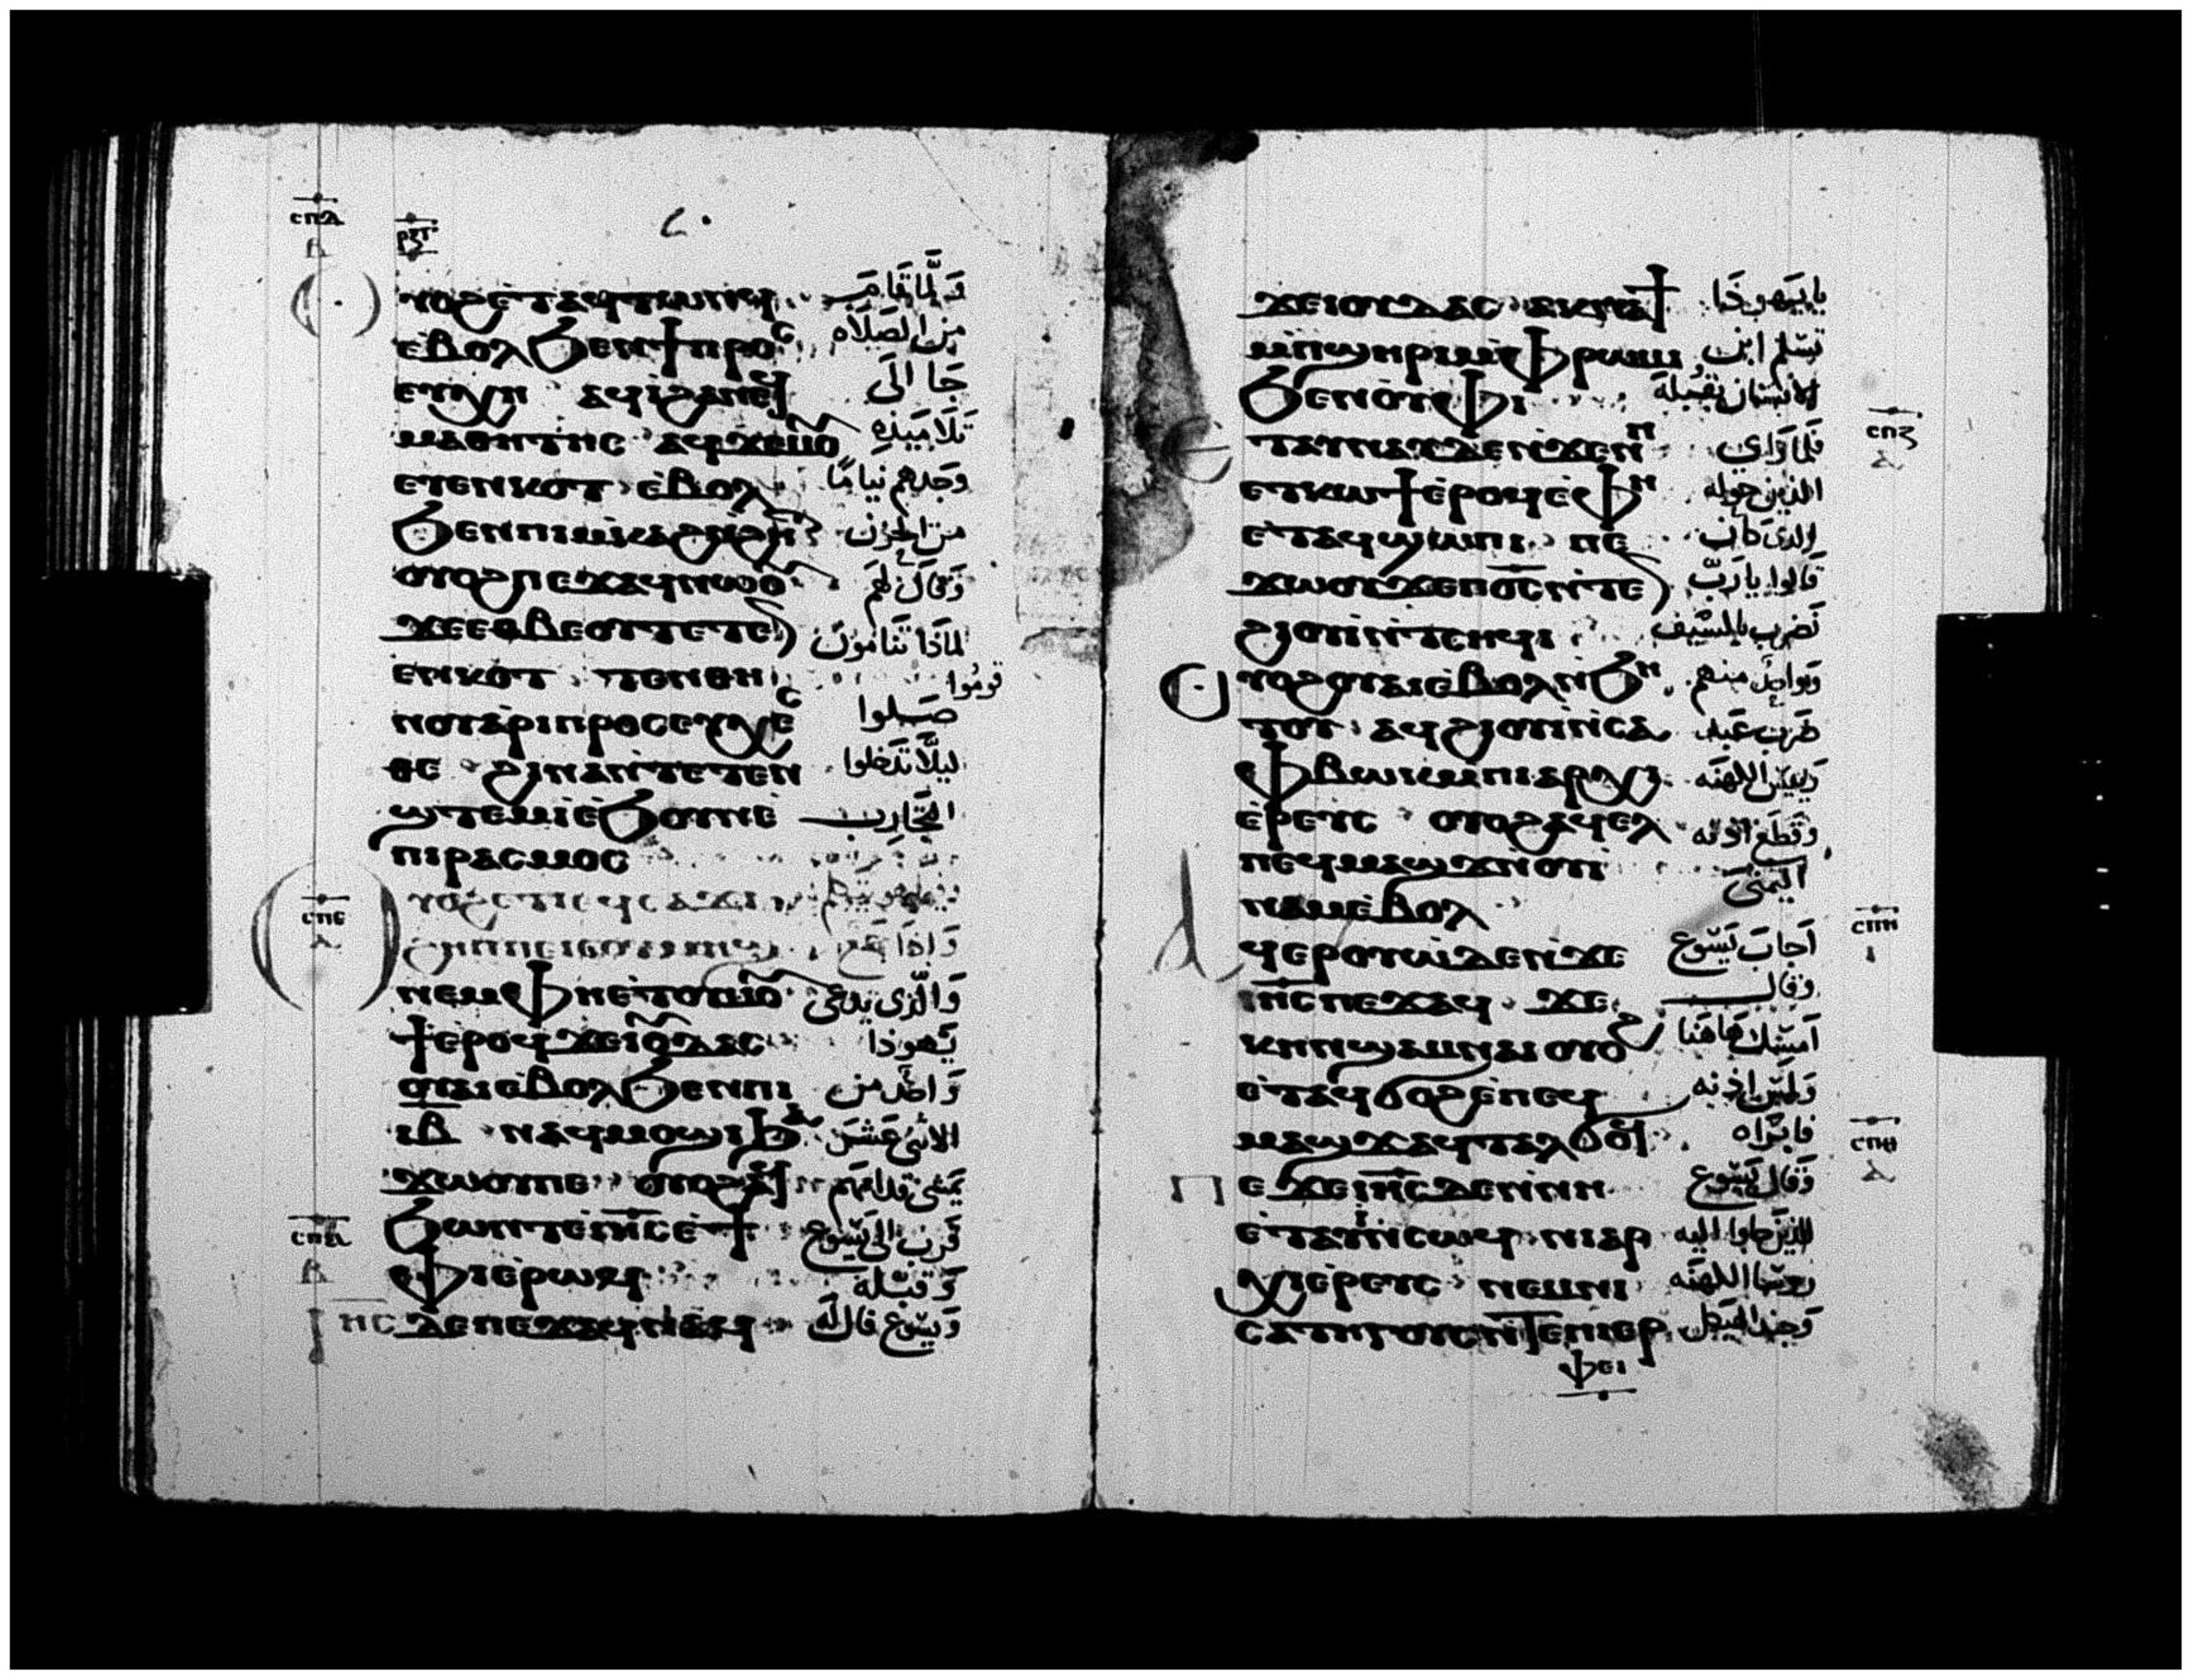 ⲥⲡⲇ
ⲃ
ⲩⲟϩⲉⲧⲁϥⲧⲱⲛϥ وَلَمَّا قَامَ
ⲉⲃⲟⲗϧⲉⲛϯⲡⲣⲟⲥ من الصَلَاه
ⲉⲩⲭⲏ ⲁϥⲓϩⲁⲛⲉϥ جَا الَى
ⲙⲁⲑⲏⲧⲏⲥ ⲁϥϫⲉⲙⲟ تلاميَذِه
ⲉⲩⲉⲛⲕⲟⲧ ⲉⲃⲟⲗ وجدهم نيامًا
ϧⲉⲛⲡⲓⲙⲕⲁϩⲛϩⲏ من الحزن
ⲟⲩⲟϩⲡⲉϫⲁϥⲛⲱⲟ وَقَالَ لهُم
ϫⲉⲉⲑⲃⲉⲟⲩⲧⲉⲧⲉ لماَذَا تَنَامُونَ
ⲉⲛⲕⲟⲧ ⲧⲉⲛⲑⲏ قومُوا
ⲛⲟⲩⲁⲣⲓⲡⲣⲟⲥⲉⲩⲭⲉⲥ صَلوا
ⲑⲉ ϩⲓⲛⲁⲛⲧⲉⲧⲉⲛ ليلَّا تَدَخلوا
ϣⲧⲉⲙⲓⲉϧⲟⲩⲛⲉ التَّجَارِب
ⲡⲓⲣⲁⲥⲙⲟⲥ
ⲥⲡⲉ
ϩⲏⲡⲡⲉⲓⲥⲟⲩⲙⲏϣ وَاِذَا
ⲛⲉⲙⲫⲏⲉⲧⲟⲩⲙⲟ وَالَّذى يدعَى
ϯⲉⲣⲟϥϫⲉⲓⲟⲇⲁⲥ يَهوذا
ⲟⲩⲁⲓⲉⲃⲟⲗϧⲉⲛⲡⲓ وَاحدٌ من
ⲓⲃ ⲛⲁϥⲙⲟϣⲓϧⲁ الاثنى عَشَرَ
ϫⲱⲟⲩⲡⲉ ⲟⲩⲟϩⲁϥ يَمشى قدامَهم
ϧⲱⲛⲧⲉⲓⲏⲥⲉϯ قَرب الَى يَسُوع
ⲫⲓⲉⲣⲱϥ وَقبَّله
ⲓⲏⲥ ⲇⲉⲡⲉϫⲁϥⲛⲁϥ وَيسُوع قال لَه
ϫⲉⲓⲟⲩⲇⲁⲥ ⲁⲕⲛⲁϯ يا يَهوذَا
ⲙⲡϣⲏⲣⲓⲙⲫⲣⲱⲙⲓ تسَلم ابن
ϧⲉⲛⲟⲩⲫⲓ الانسَان بقُبلَة
ⲥⲡⲍ
ⲉⲧⲁⲩⲛⲁⲩⲇⲉⲛϫⲉⲛⲏ فَلما رَاى
ⲉⲧⲕⲱϯⲉⲣⲟϥⲉⲫⲏ الذين حوله
ⲉⲧⲁϥϣⲱⲡⲓ ⲡⲉ الذى كَان
ϫⲱⲟⲩϫⲉⲡⲟⲥⲛⲧⲉ قَالوا يا رَبّ
ϩⲓⲟⲩⲓⲛⲧⲥⲏϥⲓ نَضرب بالسَيف
ⲟⲩⲟϩⲟⲩⲁⲓⲉⲃⲟⲗⲛϧⲏ وَواحدٌ منهم
ⲧⲟⲩ ⲁϥϩⲓⲟⲩⲓⲛⲥⲁ ضَرب عَبد
ⲫⲃⲱⲕⲙⲡⲓⲁⲣⲭⲓ رَييسَ الكهنَه
ⲉⲣⲉⲩⲥ ⲟⲩⲟϩⲁϥⲉⲗ وقَطَع اذنه
ⲡⲉϥⲙⲁϣϫⲛⲟⲩⲓ اليُمنَى
ⲛⲁⲙⲉⲃⲟⲗ
ⲥⲡⲏ
ⲁϥⲉⲣⲟⲩⲱⲇⲉⲛϫⲉ اَجابَ يَسُوع
ⲓⲏⲥⲡⲉϫⲁϥ ϫⲉ وقال
ⲕⲏⲛϣⲁⲙⲛⲁⲓ ⲟⲩⲟϩ اَمسِك هَاهُنا
ⲉⲧⲁϥϭⲟϩⲉⲡⲉϥ وَلمَسَ اذنه
ⲙⲁϣϫⲁϥⲧⲁⲗϭⲟϥ فابرَاه
ⲥⲡⲑ
ⲡⲉϫⲉⲓⲏⲥⲇⲉⲛⲛⲏ وَقَالَ يَسُوع
ⲉⲧⲁⲩⲓⲛⲥⲱϥ ⲛⲓⲁⲣ للذينَ جاوا اليه
ⲭⲓⲉⲣⲉⲩⲥ ⲛⲉⲙⲛⲓ روسَا الكهنَه
ⲥⲁⲧⲏⲅⲟⲩⲥⲛⲧⲉⲡⲓⲉⲣ وَجند الهَيكل
ⲫⲉⲓ